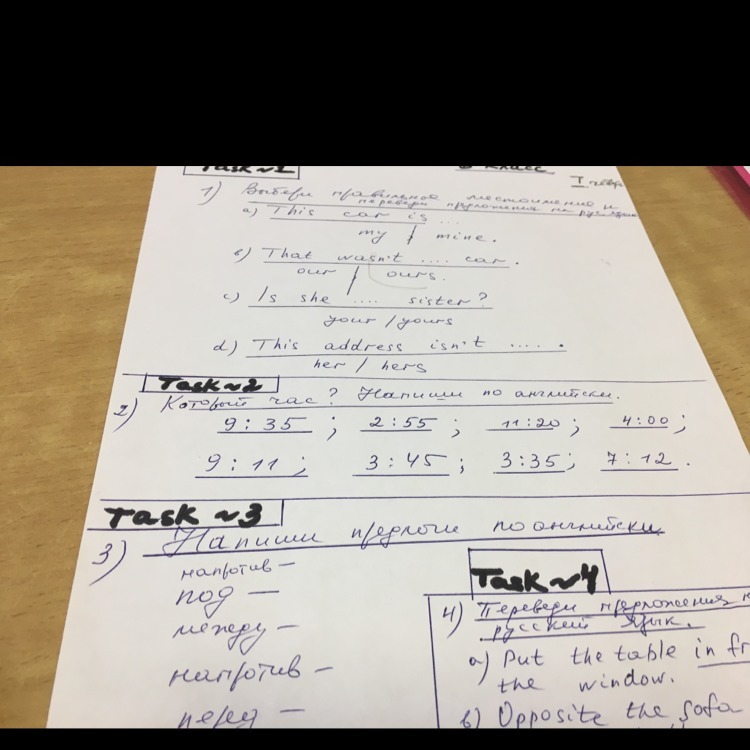 Task №1
6 класс
I четв
1) Выбери правильное местоимение и
переведи предложения на рус. язык
a) This car is ...
my / mine.
в) That wasn't .... car.
our / ours.
c) Is she .... sister?
your / yours
d) This address isn't ..... .
her / hers
Task №2
2) Который час? Напиши по английски.
9:35 ; 2:55 ; 11:20 ; 4:00 ;
9:11 ; 3:45 ; 3:35 ; 7:12 .
Task №3
3) Напиши предлоги по английски
напротив –
под –
между –
напротив –
перед –
Task №4
4) Переведи предложения
русский язык.
a) Put the table in fr
the window.
в) Opposite the sofa